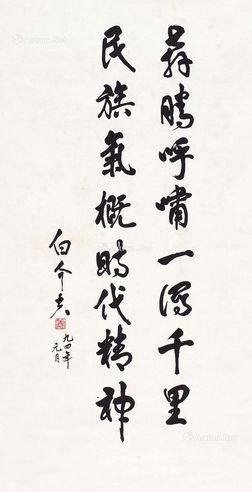 奔腾呼啸一泻千里
民族氣概時代精神
白介夫
九四年
元月